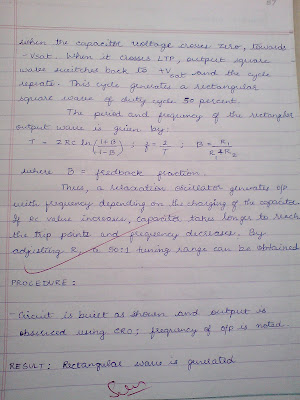 37
when the capacitor voltage crosses zero, towards
-Vsat. When it crosses LTP, output square
wave switches back to +Vsat and the cycle
repeats. This cycle generates a rectangular
square wave of duty cycle 50 percent.
The period and frequency of the rectangular
output wave is given by:
T = 2RC ln(1+B/1-B) ; f = 1/T ; B = R1/R1+R2
where B = feedback fraction.
Thus, a relaxation oscillator generates o/p
with frequency depending on the charging of the capacitor.
If RC value increase, capacitor takes longer to reach
the trip points and frequency decreases. By
adjusting R, a 50:1 tuning range can be obtained
PROCEDURE :
- Circuit is built as shown and output is
observed using CRO; frequency of o/p is noted.
RESULT: Rectangular wave is generated